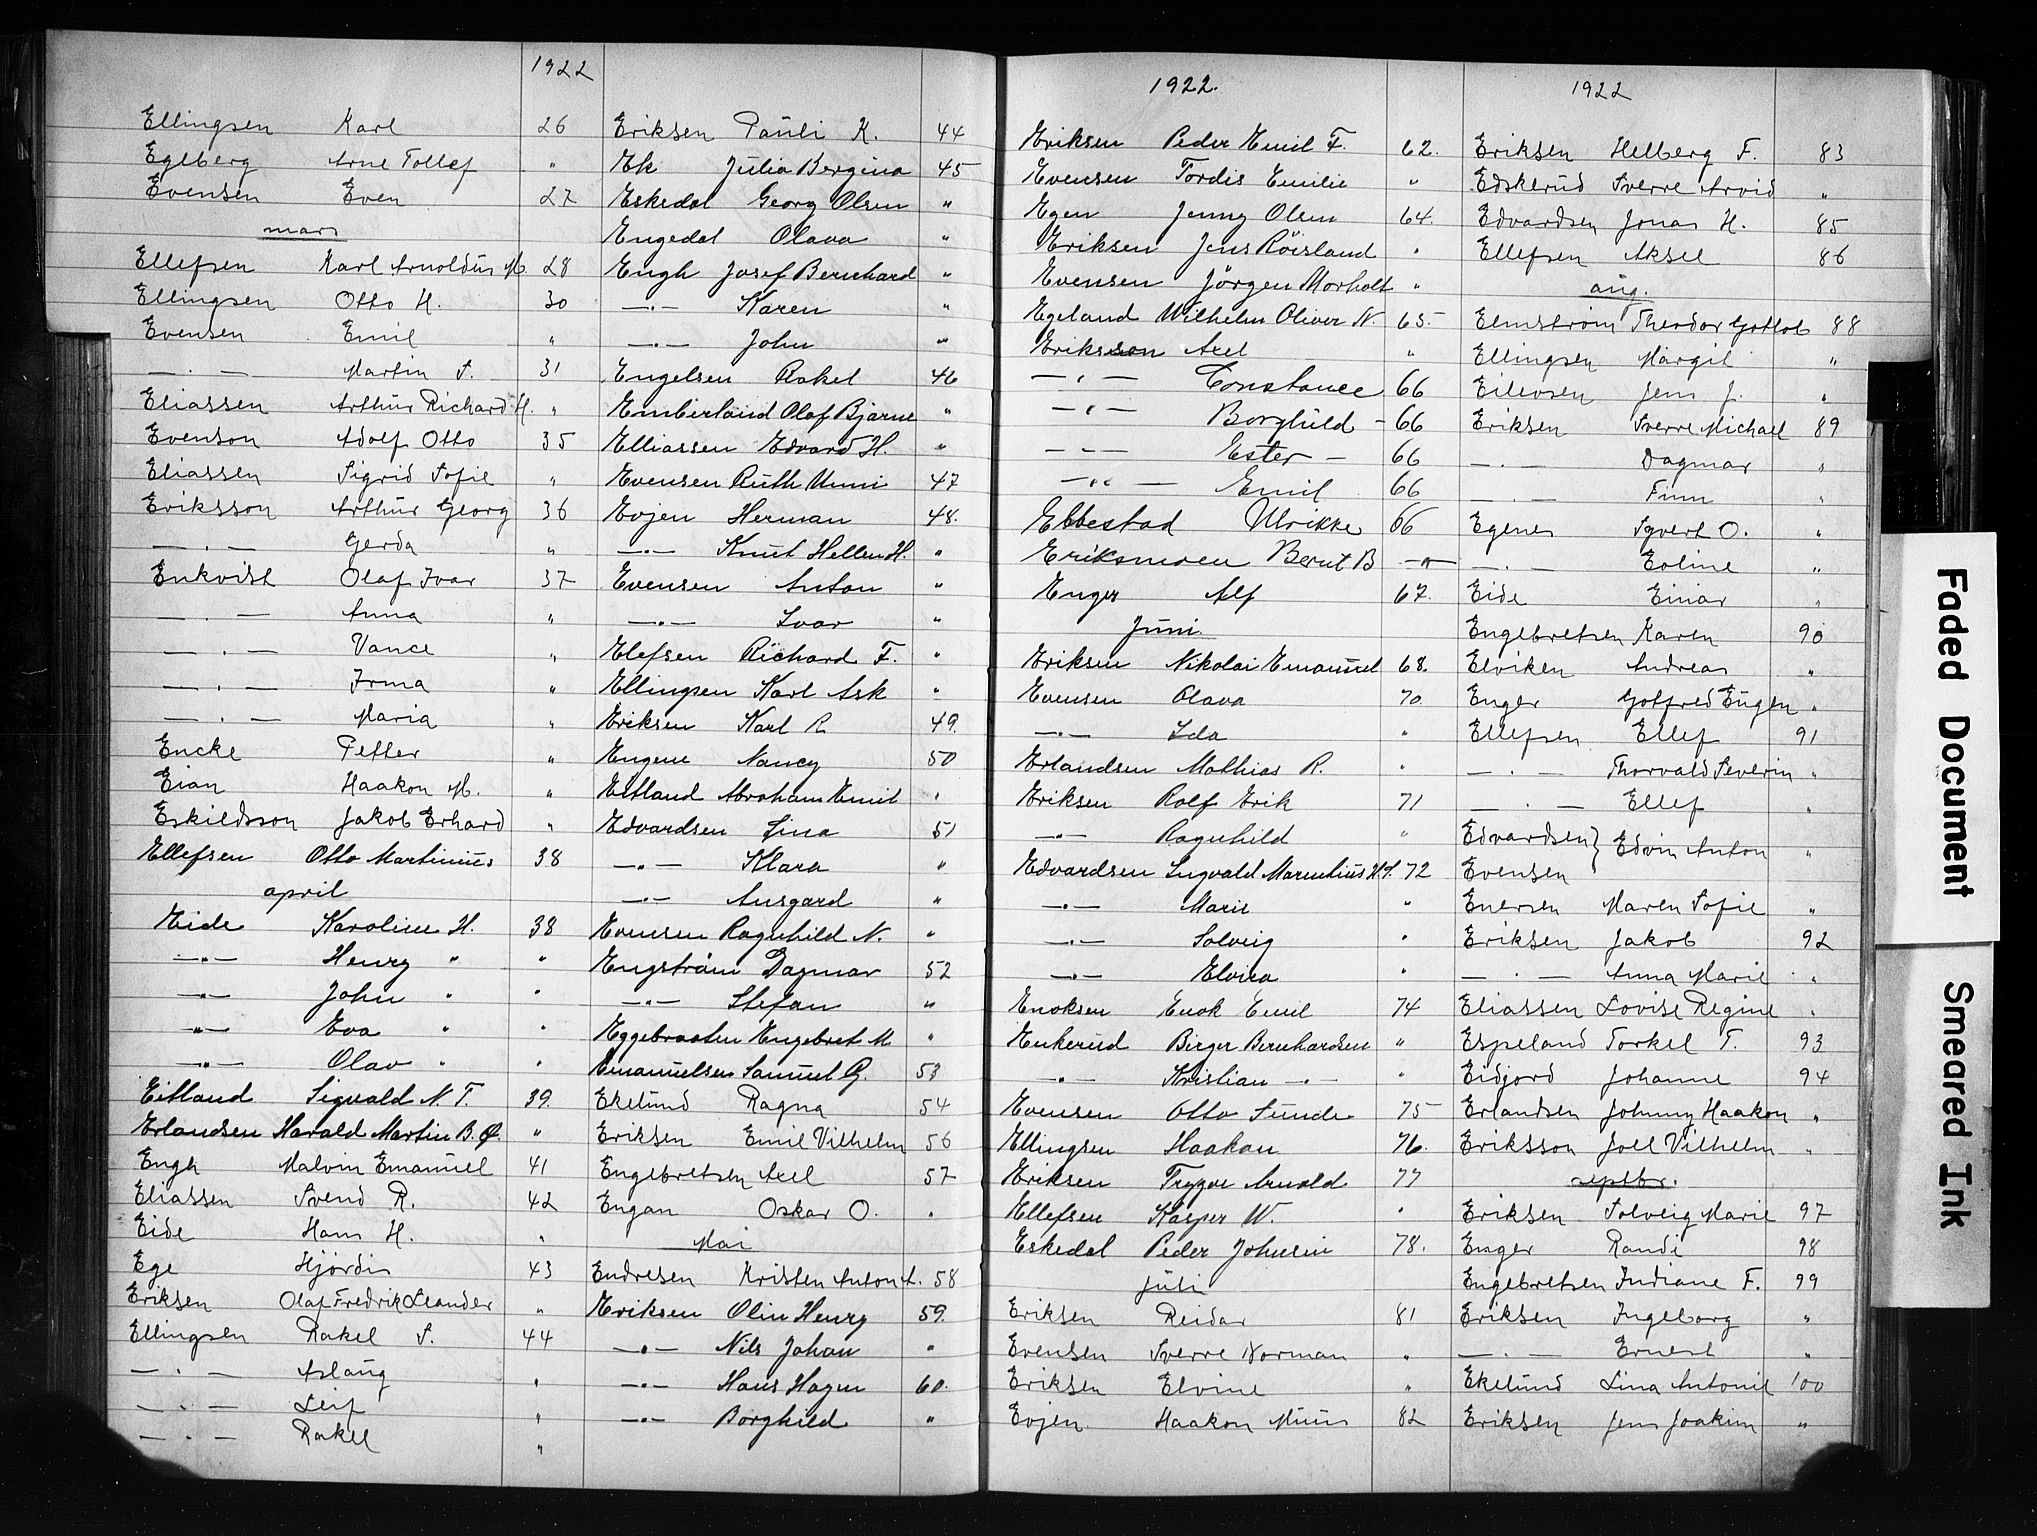 1922
Ellingsen Karl 26
Egeberg Arne Tollef "
Evensen Even 27
mars
Ellefsen Karl Arnoldus M. 28
Ellingsen Otto H. 30
Evensen Emil "
— . — Martin S. 31
Eliassen Arthur Richard H. "
Evenson Adolf Otto 35
Eliassen Sigrid Sofie "
Eriksson Arthur Georg 36
— . — Gerda "
Enkvist Olaf Ivar 37
— . — Anna "
— . — Vance "
— . — Irma "
— . — Maria "
Encke Petter "
Eian Haakon M. "
Eskildsson Jakob Erhard "
Ellefsen Otto Martinius 38
april
Eide Karoline H. 38
— " — Henry " "
— " — John " "
— " — Eva " "
— " — Olav " "
Eitland Sigvald N. T. 39.
Erlandsen Harald Martin B. Ø. "
Engh Malvin Emanuel 41
Eliassen Svend R. 42
Eide Hans H. "
Ege Hjørdis 43
Eriksen Olaf Fredrik Leander "
Ellingsen Rakel S. 44
— . — Aslaug "
— . — Leif "
— . — Rakel "
Eriksen Pauli K. 44
Ek Julia Bergina 45
Eskedal Georg Olsen "
Engedal Olava "
Engh Josef Bernhard "
— " — Karen "
— " — John "
Engelsen Rakel 46
Emberland Olaf Bjarne "
Elliassen Edvard H. "
Evensen Ruth Unni 47
Evjen Herman 48.
— " — Knut Hellen H. "
Evensen Anton "
— " — Ivar "
Elefsen Richard F. "
Ellingsen Karl Ask "
Eriksen Karl R. 49.
Engene Nancy 50
Eitland Abraham Emil "
Edvardsen Lina 51
— " — Klara "
— " — Ansgard "
Evensen Ragnhild N. "
Engstrøm Dagmar 52
— " — Stefan "
Eggebraaten Engebret M. "
Emanuelsen Samuel G. 53
Ekelund Ragna 54
Eriksen Emil Vilhelm 56
Engebretsen Axel 57
Engan Oskar O. "
Mai
Endresen Kristen Anton A. 58
Eriksen Olin Henry 59.
— " — Nils Johan "
— " — Hans Hagen 60.
— " — Borghild "
1922.
Eriksen Peder Emil F. 62.
Evensen Tordis Emilie "
Egen Jenny Olsen 64.
Eriksen Jens Röisland "
Evensen Jörgen Morholt "
Egeland Wilhelm Oliver N. 65.
Eriksson Axel "
— " — Constance 66
— " — Borghild - 66
— " — Ester - 66
— " — Emil 66
Ebbestad Ulrikke 66
Eriksmoen Berit B — " —
Enger Alf 67.
Juni
Eriksen Nikolai Emanuel 68.
Evensen Olava 70.
— " — Ida "
Erlandsen Mathias R. "
Eriksen Rolf Erik 71
— " — Ragnhild "
Edvardsen Ingvald Marentius H.S. 72
— " — Marie "
— " — Solveig "
— " — Elvira "
Enoksen Enok Emil 74
Enkerud Birger Bernhardsen "
— " — Kristian — " — "
Evensen Otto Sunde 75
Ellingsen Haakon 76.
Eriksen Trygve Arnold 77
Ellefsen Kasper W. "
Eskedal Peder Johnsen 78.
juli
Eriksen Reidar 81
Evensen Sverre Norman "
Eriksen Elvine "
Evjen Haakon Muus 82
1922
Eriksen Helberg F. 83
Edskerud Sverre Arvid "
Edvardsen Jonas H. 85
Ellefsen Aksel 86
aug.
Elmstrøm Theodor Gottlob 88
Ellingsen Margit "
Eilevsen Jens J. "
Eriksen Sverre Michael 89
— . — Dagmar "
— . — Finn "
Egenes Syvert O. "
— . — Eoline "
Eide Einar "
Engebretsen Karen 90
Elviken Andreas "
Enger Gotfred Eugen "
Ellefsen Ellef 91
— . — Thorvald Severin "
— . — Ellef "
Edvardsen } Edvin Anton "
Evensen
Enersen Maren Sofie "
Eriksen Jakob 92
— . — Anna Marie "
Eliassen Lovise Regine "
Espeland Torkel T. 93
Eidjord Johanne 94
Erlandsen Johnny Haakon "
Eriksson Joel Vilhelm "
septbr.
Eriksen Solveig Marie 97
Enger Randi 98
Engebretsen Indiane F. 99
Eriksen Ingeborg "
— . — Ernest "
Ekelund Lina Antonie 100
Eriksen Jens Joakim "
Faded Document
Smeared Ink